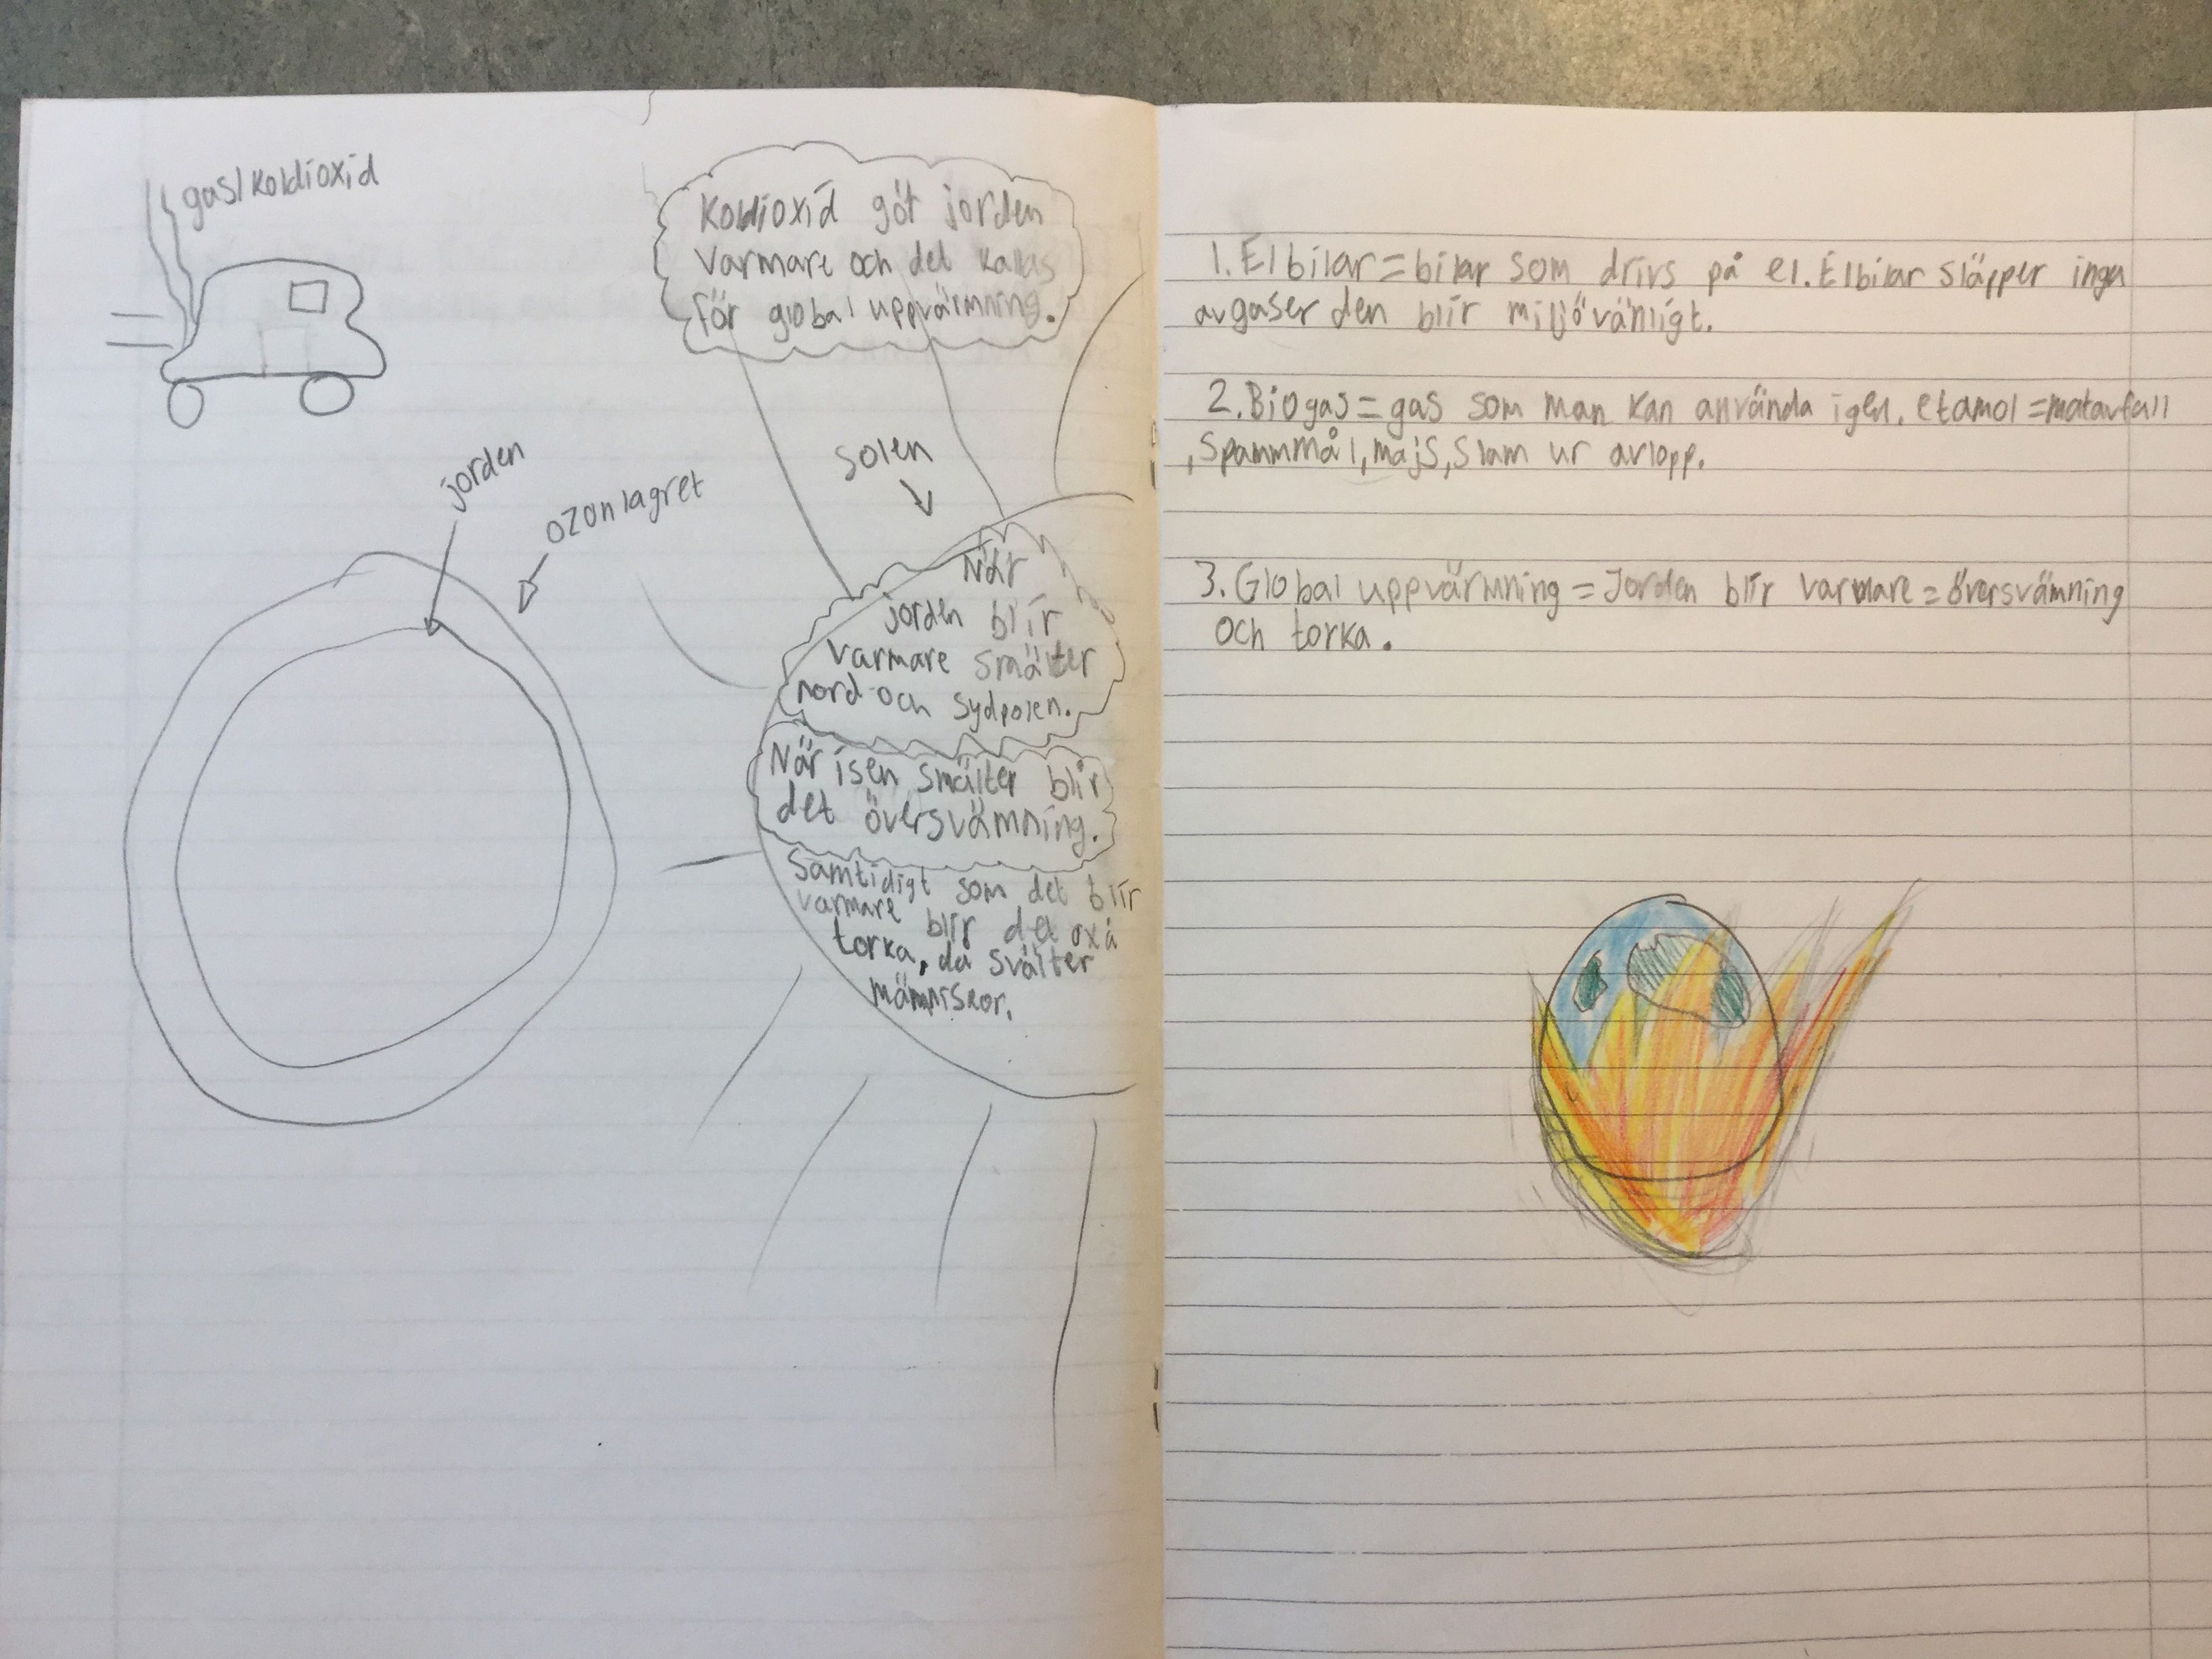 gas/koldioxid
Koldioxid göt jorden
varmare och det kallas
för global uppvärmning.
jorden
ozonlagret
solen
När
jorden blir
varmare smälter
nord-och sydpolen.
När isen smälter blir
det översvämning.
Samtidigt som det blir
varmare blir det oxå
torka, då svälter
människor.
1. Elbilar=bilar som drivs på el. Elbilar släpper inga
avgaser den blir miljövänligt.
2. Biogas=gas som man kan använda igen. etamol=matavfall
,spammmål, majs, slam ur avlopp.
3. Global uppvärmning = Jorden blir varmare = översvämning
och torka.